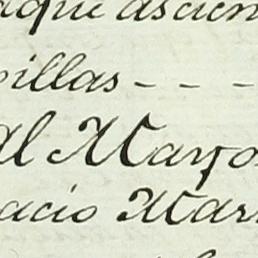 aqui ascien
illas - - -
al Maryo
acio Mar